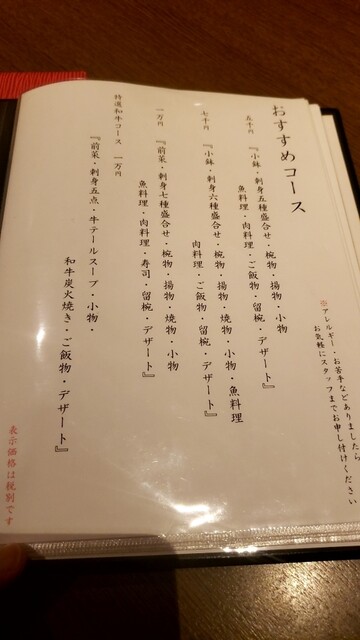 おすすめコース
※アレルギー・お苦手などありましたら
お気軽にスタッフまでお申し付けください
五千円 『小鉢・刺身五種盛合せ・椀物・揚物・小物
魚料理・肉料理・ご飯物・留椀・デザート』
七千円 『小鉢・刺身六種盛合せ・椀物・揚物・焼物・小物・魚料理
肉料理・ご飯物・留椀・デザート』
一万円 『前菜・刺身七種盛合せ・椀物・揚物・焼物・小物
魚料理・肉料理・寿司・留椀・デザート』
特選和牛コース 一万円
『前菜・刺身五点・牛テールスープ・小物・
和牛炭火焼き・ご飯物・デザート』
表示価格は税別です